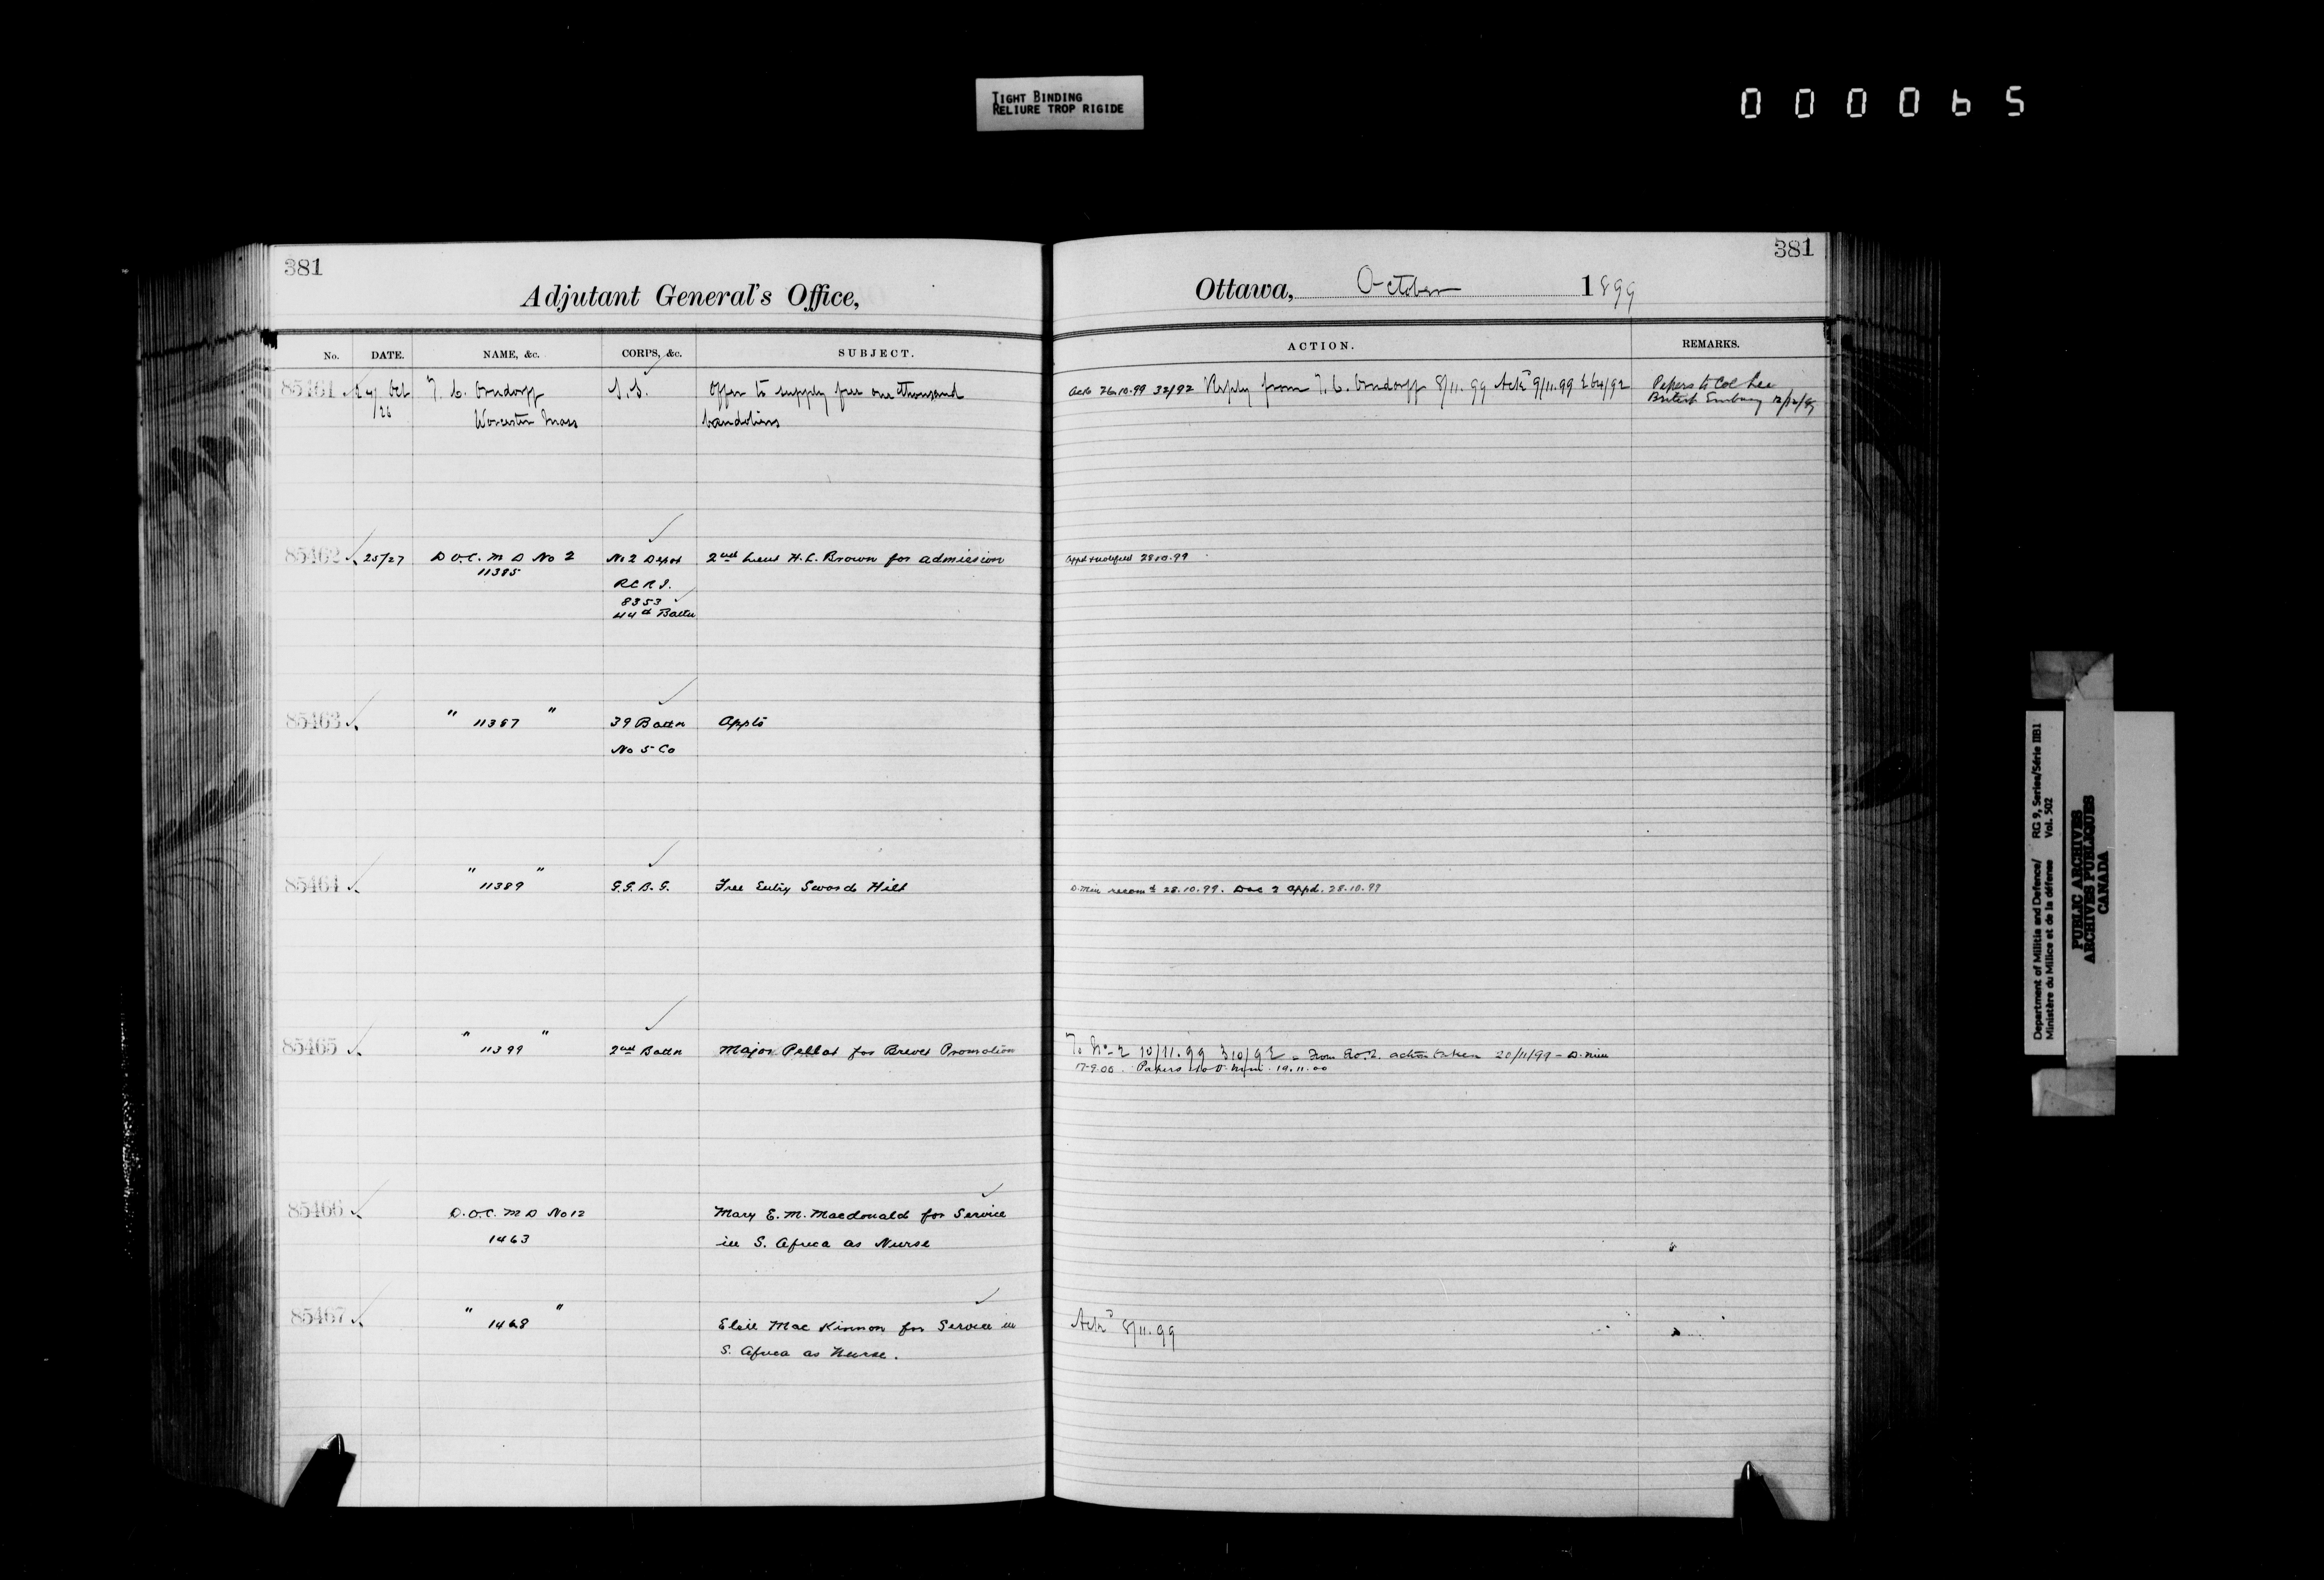 TIGHT BINDING
RELIURE TROP RIGIDE
000065
381
Adjutant General's Office,
No. DATE. NAME, &c. CORPS, &c. SUBJECT.
85461 24 Oct T. C. Orndorff S.S. Offer to supply free one thousand
/26 Worcester Mass bandoliers
85462 25/27 D.O.C. M D No 2 No 2 Depot 2nd Lieut H.L. Brown for admission
11385 R C R I.
8353
44th Battn
85463 " 11387 " 39 Battn Appts
No 5 Co
85464 " 11389 " G.G.B.G. Free Entry Sword Hilt
85465 " 11399 " 2nd Battn Major Pellat for Brevet Promotion
85466 D.O.C. M D No 12 Mary E. M. Macdonald for Service
1463 in S. Africa as Nurse
85467 " 1468 " Elsie Mac Kinnon for Service in
S. Africa as Nurse.
381
Ottawa, October 1899
ACTION. REMARKS.
Ack 26.10.99 32/92 Reply from T. C. Orndorff 8/11.99 Ackd 9/11.99 264/92 Papers to Col Lee
British Embassy 12/12/99
Appd & notified 28.10.99
D. Min recomd 28.10.99. Doc 2 appd. 28.10.99
To No 2 10/11.99 310/92 action taken 20/11/99 - D. Min
17.9.00. Papers to D. Min. 19.11.00
Ackd 8/11.99
Department of Militia and Defence/ RG 9, Series/Série IIB1
Ministère du Milice et de la défense Vol. 502
PUBLIC ARCHIVES
ARCHIVES PUBLIQUES
CANADA